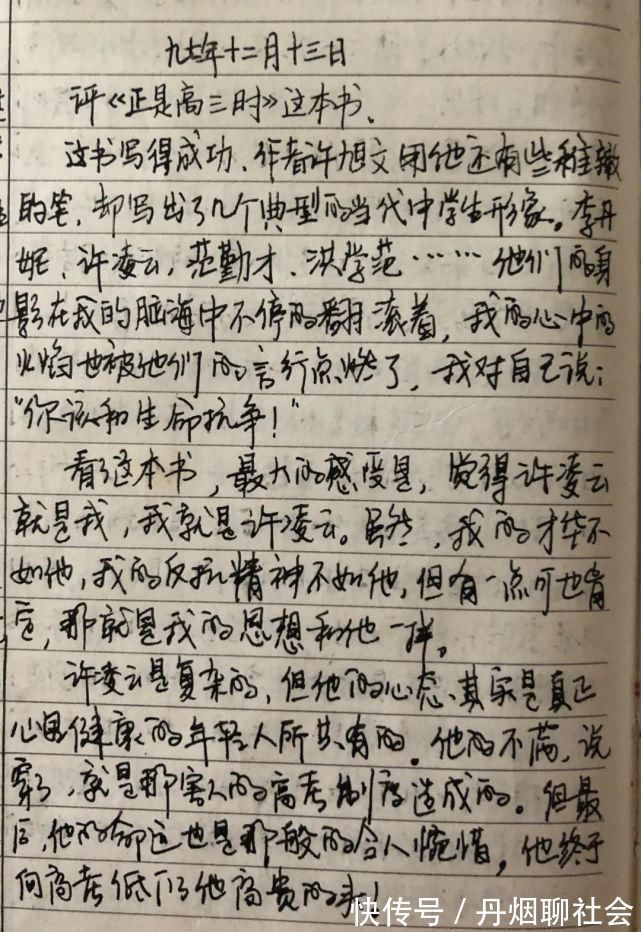 九七年十二月十三日
评《正是高三时》这本书、
这书写得成功、作者许旭文用他还有些稚嫩
的笔，却写出了几个典型的当代中学生形象。李丹
妮、许凌云，范勤才、洪学范……他们的身
影在我的脑海中不停的翻滚着，我的心中的
火焰也被他们的言行点燃了，我对自己说：
“你该和生命抗争！”
看了这本书，最大的感受是，觉得许凌云
就是我，我就是许凌云。虽然，我的才华不
如他，我的反抗精神不如他，但有一点可也肯
定，那就是我的思想和他一样。
许凌云是复杂的，但他的心态、其实是真正
心里健康的年轻人所共有的。他的不满，说
穿了，就是那害人的高考制度造成的。但最
后，他的命运也是那般的令人惋惜，他终于
向高考低下了他高贵的头！
快传号 / 丹烟聊社会